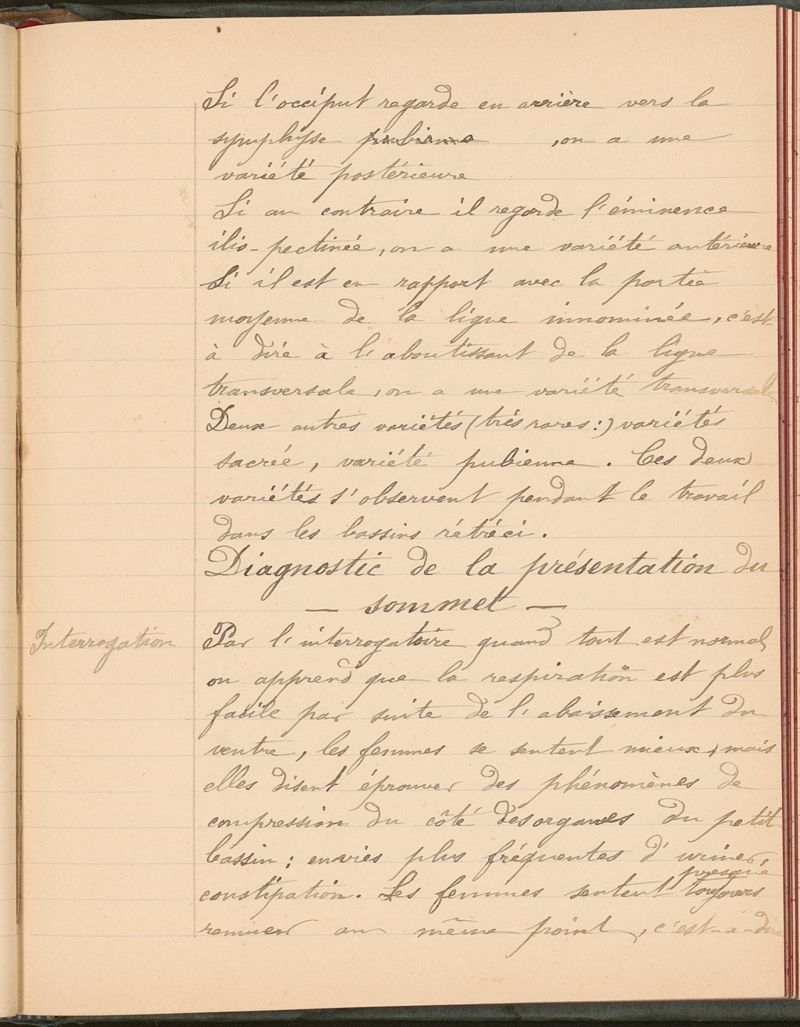 Si l'occiput regarde en arrière vers la
symphyse pubienne , on a une
variété postérieure
Si au contraire il regarde l'éminence
ilio-pectinée, on a une variété antérieure
Si il est en rapport avec la partie
moyenne de la ligne innominée, c'est-
à dire à l'aboutissant de la ligne
transversale, on a une variété transversale
Deux autres variétés (très rares:) variétés
sacrée, variété pubienne. Ces deux
variétés s'observent pendant le travail
dans les bassins rétréci.
Diagnostic de la présentation du
— sommet —
Interrogation
Par l'interrogatoire quand tout est normal
on apprend que la respiration est plus
facile par suite de l'abaissement du
ventre, les femmes se sentent mieux, mais
elles disent éprouver des phénomènes de
compression du côté des organes du petit
bassin : envies plus fréquentes d'uriner,
presque
constipation. Les femmes sentent toujours
remuer au même point, c'est-à-dire